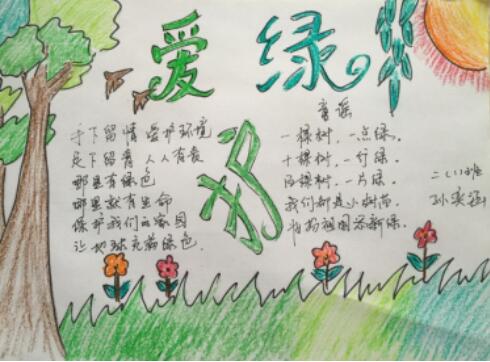 爱绿护
手下留情 爱护环境
足下留青 人人有责
哪里有绿色
哪里就有生命
保护我们的家园
让地球充满绿色
童谣
一棵树，一点绿，
十棵树，一行绿。
百棵树，一片绿。
我们都是小树苗
为祖国添新绿。
二(1)班